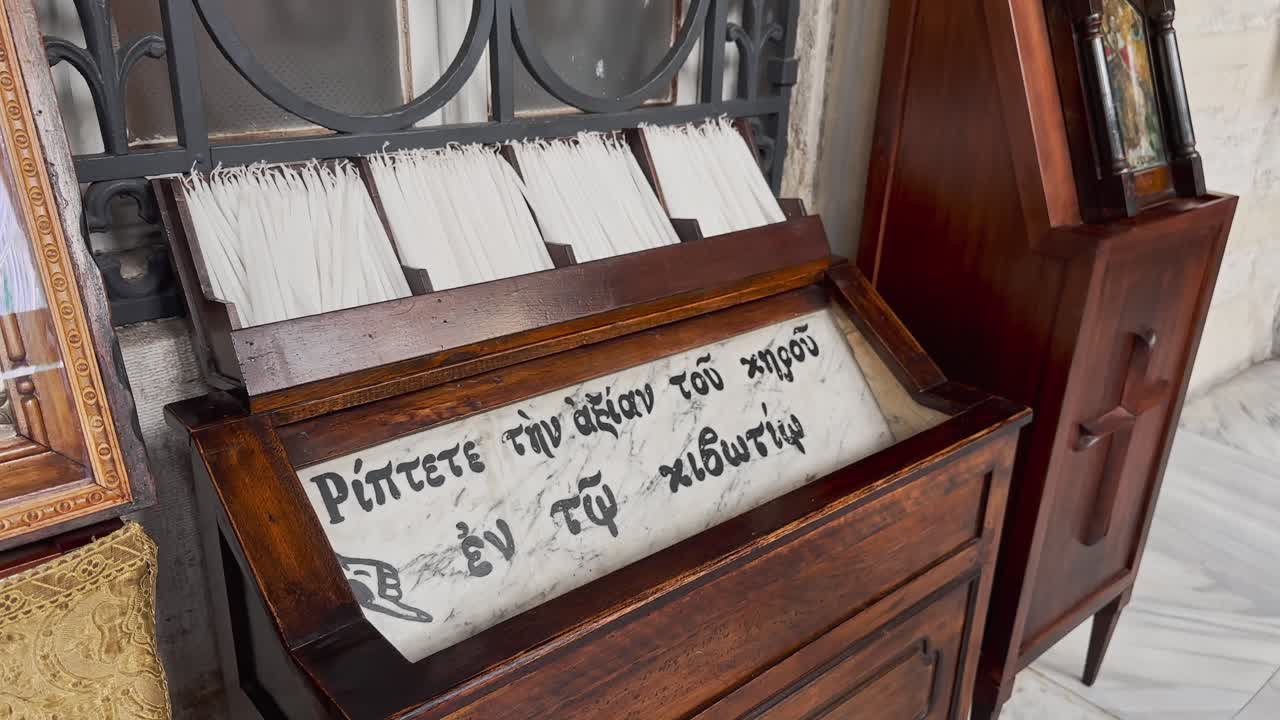 Ρίπτετε τὴν ἀξίαν τοῦ κηροῦ
ἐν τῷ κιβωτίῳ